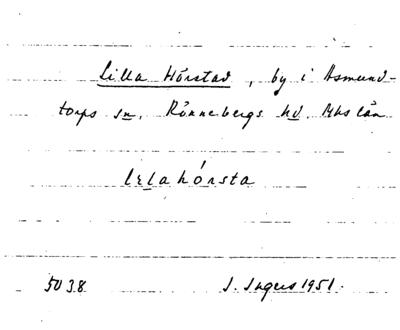 Lilla Hörstad, by i Asmund-
torps sn. Rönnebergs hd. Mhs län
lilahórsta
5038 J. Ingers 1951.